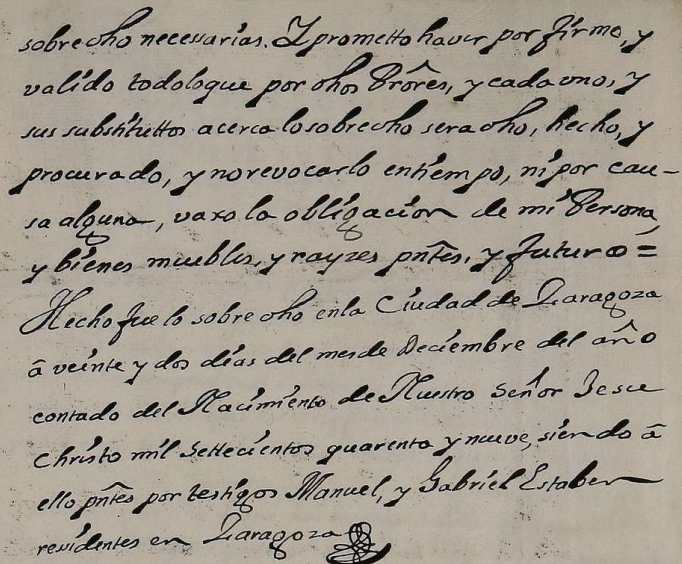 sobre dho necessarias. Y prometto haver por firme, y
valido todo lo que por dhos Prôres, y cada uno, y
sus substituttos acerca lo sobre dho sera dho, hecho, y
procurado, y no revocarlo en tiempo, ni por cau-
sa alguna, vaxo la obligacion de mi Persona,
y bienes muebles, y rayzes pñtes, y futuros =
Hecho fue lo sobre dho en la Ciudad de Zaragoza
â veinte y dos dias del mes de Deciembre del año
contado del Nacimiento de Nuestro Señor Jesu
Christo mil settecientos quarenta y nueve, siendo â
ello pñtes por testigos Manuel, y Gabriel Estaben
residentes en Zaragoza